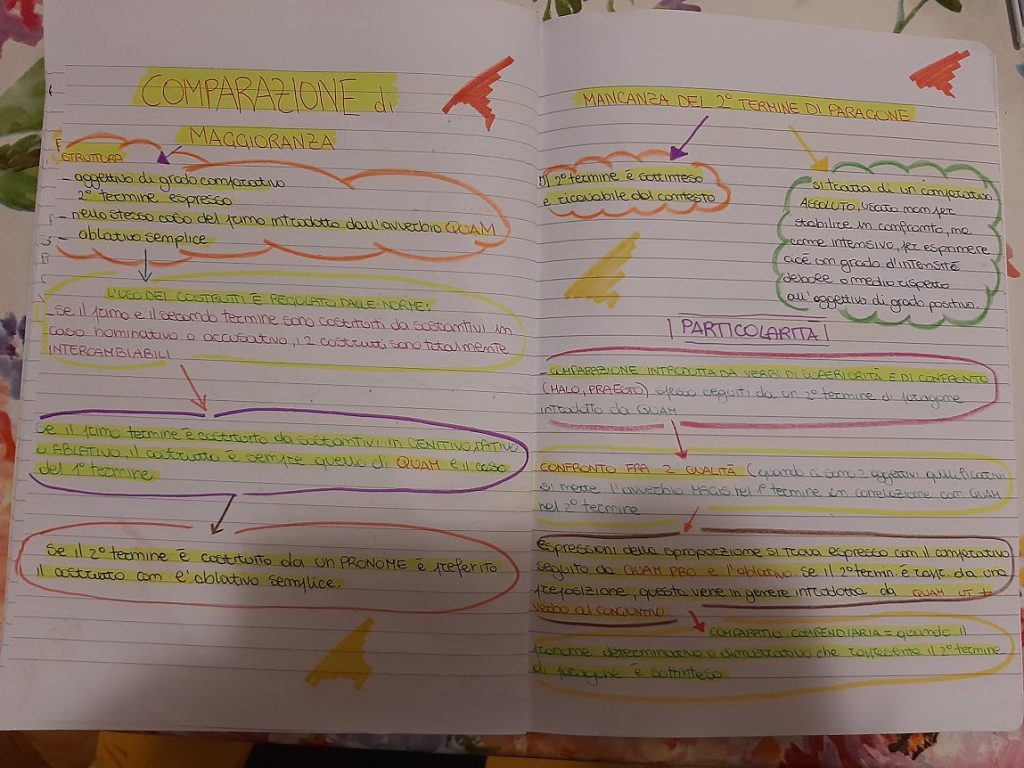 COMPARAZIONE di
MAGGIORANZA
STRUTTURA
- aggettivo di grado comparativo
2° termine espresso
- nello stesso caso del primo introdotto dall'avverbio QUAM
- ablativo semplice
L'USO DEI COSTRUTTI È REGOLATO DALLE NORME:
- se il primo e il secondo termine sono costituiti da sostantivi in
caso nominativo o accusativo, i 2 costrutti sono totalmente
INTERCAMBIABILI
se il primo termine è costituito da sostantivi in GENITIVO, DATIVO
o ABLATIVO, il costrutto è sempre quello di QUAM e il caso
del 1° termine
Se il 2° termine è costituito da un PRONOME è preferito
il costrutto com e' ablativo semplice.
MANCANZA DEL 2° TERMINE DI PARAGONE
2° termine è sottinteso
e ricavabile dal contesto
si tratta di un comparativo
ASSOLUTO, usato non per
stabilire un confronto, ma
come intensivo, per esprimere
cioè un grado d'intensità
debole o medio rispetto
all'aggettivo di grado positivo.
PARTICOLARITÀ
- COMPARAZIONE INTRODOTTA DA VERBI DI SUPERIORITÀ E DI CONFRONTO
(MALO, PRAESTO) spesso seguiti da un 2° termine di paragone
introdotto da QUAM
CONFRONTO FRA 2 QUALITÀ (quando ci sono 2 aggettivi qualificativi
si mette l'avverbio MAGIS nel 1° termine in correlazione com QUAM
nel 2° termine
espressioni della sproporzione si trova espresso com il comparativo
seguito da QUAM PRO e l'ablativo se il 2° termin. è rapp. da una
preposizione, questa viene in genere introdotta da QUAM UT +
verbo al CONGIUNTIVO
COMPARATIO COMPENDIARIA = quando il
pronome determinativo o dimostrativo che rappresenta il 2° termine
di paragone è sottinteso